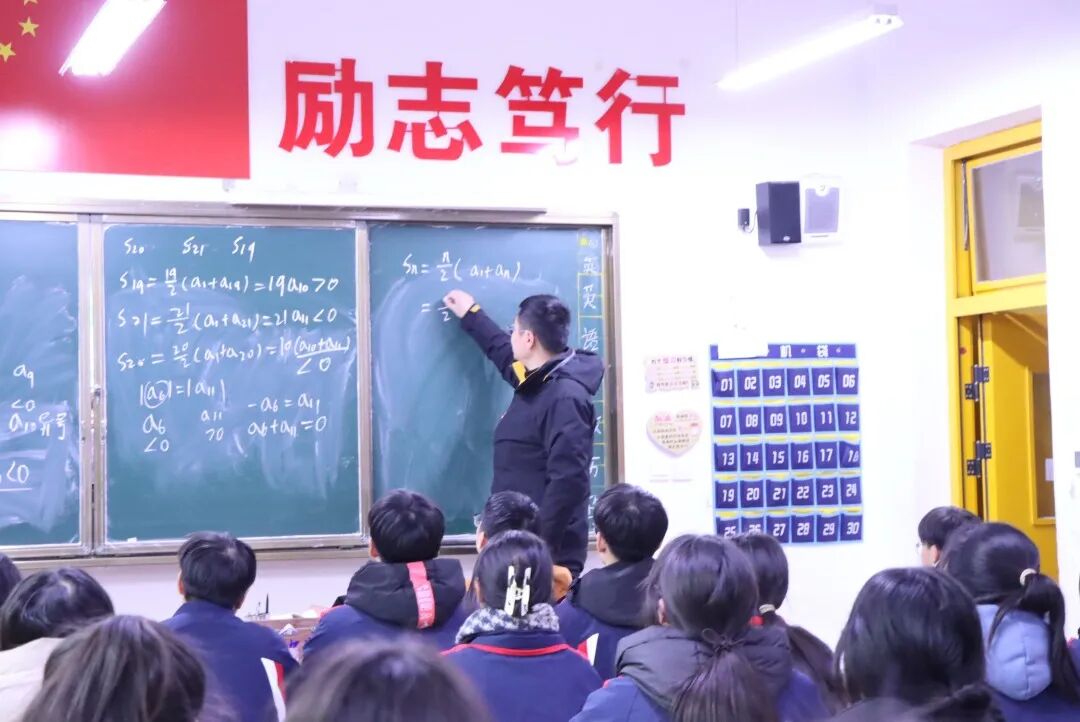 励志笃行
S20 S21 S19
S19 = 19/2 (a1+a19) = 19a10 > 0
S21 = 21/2 (a1+a21) = 21a11 < 0
S20 = 20/2 (a1+a20) = 10(a10+a11) < 0
|a6| = |a11|
a6 a11 -a6 = a11
<0 >0 a6+a11 = 0
a9
<0
a10异号
<0
Sn = n/2 (a1+an)
= 2
英
语
机 袋
01 02 03 04 05 06
07 08 09 10 11 12
13 14 15 16 17 18
19 20 21 22 23 24
25 26 27 28 29 30